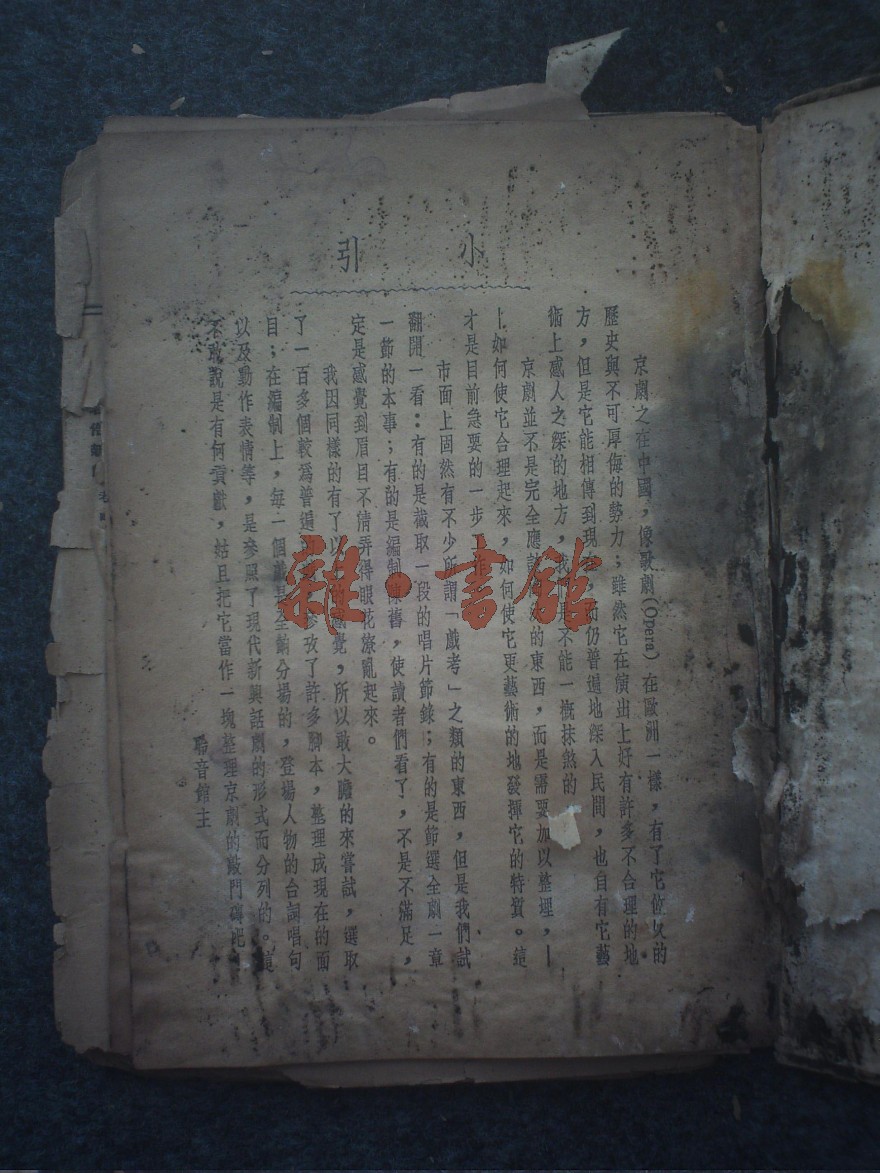 小引
京劇之在中國，像歌劇(Opera)在歐洲一樣，有了它悠久的
歷史與不可厚侮的勢力；雖然它在演出上好有許多不合理的地
方，但是它能相傳到現在，而仍普遍地深入民間，也自有它藝
術上感人之深的地方，我們是不能一概抹煞的
京劇並不是完全應該的東西，而是需要加以整理，—
上如何使它合理起來，如何使它更藝術的地發揮它的特質。這
才是目前急要的一步工作
市面上固然有不少所謂「戲考」之類的東西，但是我們試
翻開一看：有的是截取一段的唱片節錄；有的是節選全劇一章
一節的本事；有的是編制陳舊，使讀者們看了，不是不滿足，
定是感覺到眉目不清弄得眼花潦亂起來。
我因同樣的有了以上的感覺，所以敢大膽的來嘗試，選取
了一百多個較爲普遍的，參攷了許多脚本，整理成現在的面
目；在編制上，每一個戲是全齣分場的，登場人物的台詞唱句
以及動作表情等，是參照了現代新興話劇的形式而分列的。這
不敢說是有何貢獻，姑且把它當作一塊整理京劇的敲門磚吧
聆音館主
雜·書館